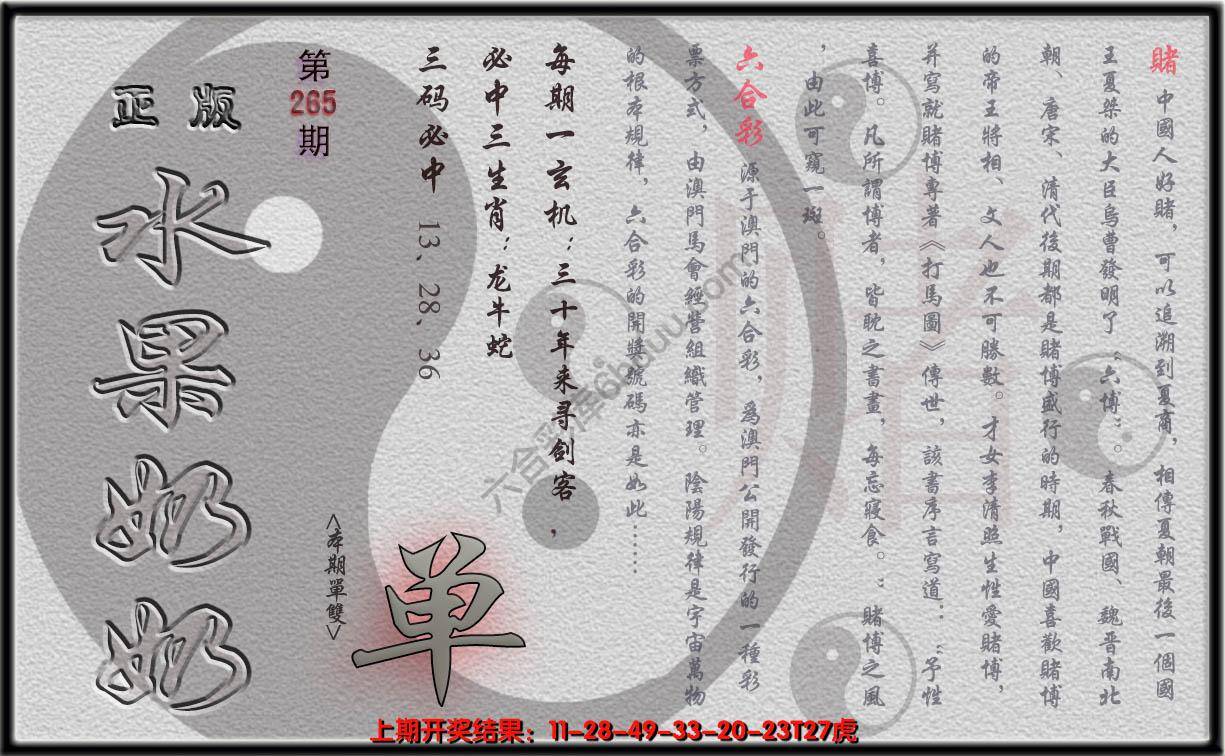 賭 中國人好賭，可以追溯到夏商，相傳夏朝最後一個國
王夏桀的大臣烏曹發明了“六博”。春秋戰國、魏晋南北
朝、唐宋、清代後期都是賭博盛行的時期，中國喜歡賭博
的帝王將相、文人也不可勝數。才女李清照生性愛賭博，
并寫就賭博專著《打馬圖》傳世，該書序言寫道：“予性
喜博。凡所謂博者，皆耽之書畫，每忘寢食。”賭博之風
，由此可窺一斑。
六合彩 源于澳門的六合彩，爲澳門公開發行的一種彩
票方式，由澳門馬會經營組織管理。陰陽規律是宇宙萬物
的根本規律，六合彩的開獎號碼亦是如此……
每期一玄机：三十年来寻剑客，
必中三生肖：龙牛蛇
三码必中 13、28、36
第
265
期
正版
水果奶奶
<本期單雙>
单
賭
六合彩棒6bbuu.com
上期开奖结果：11-28-49-33-20-23T27虎